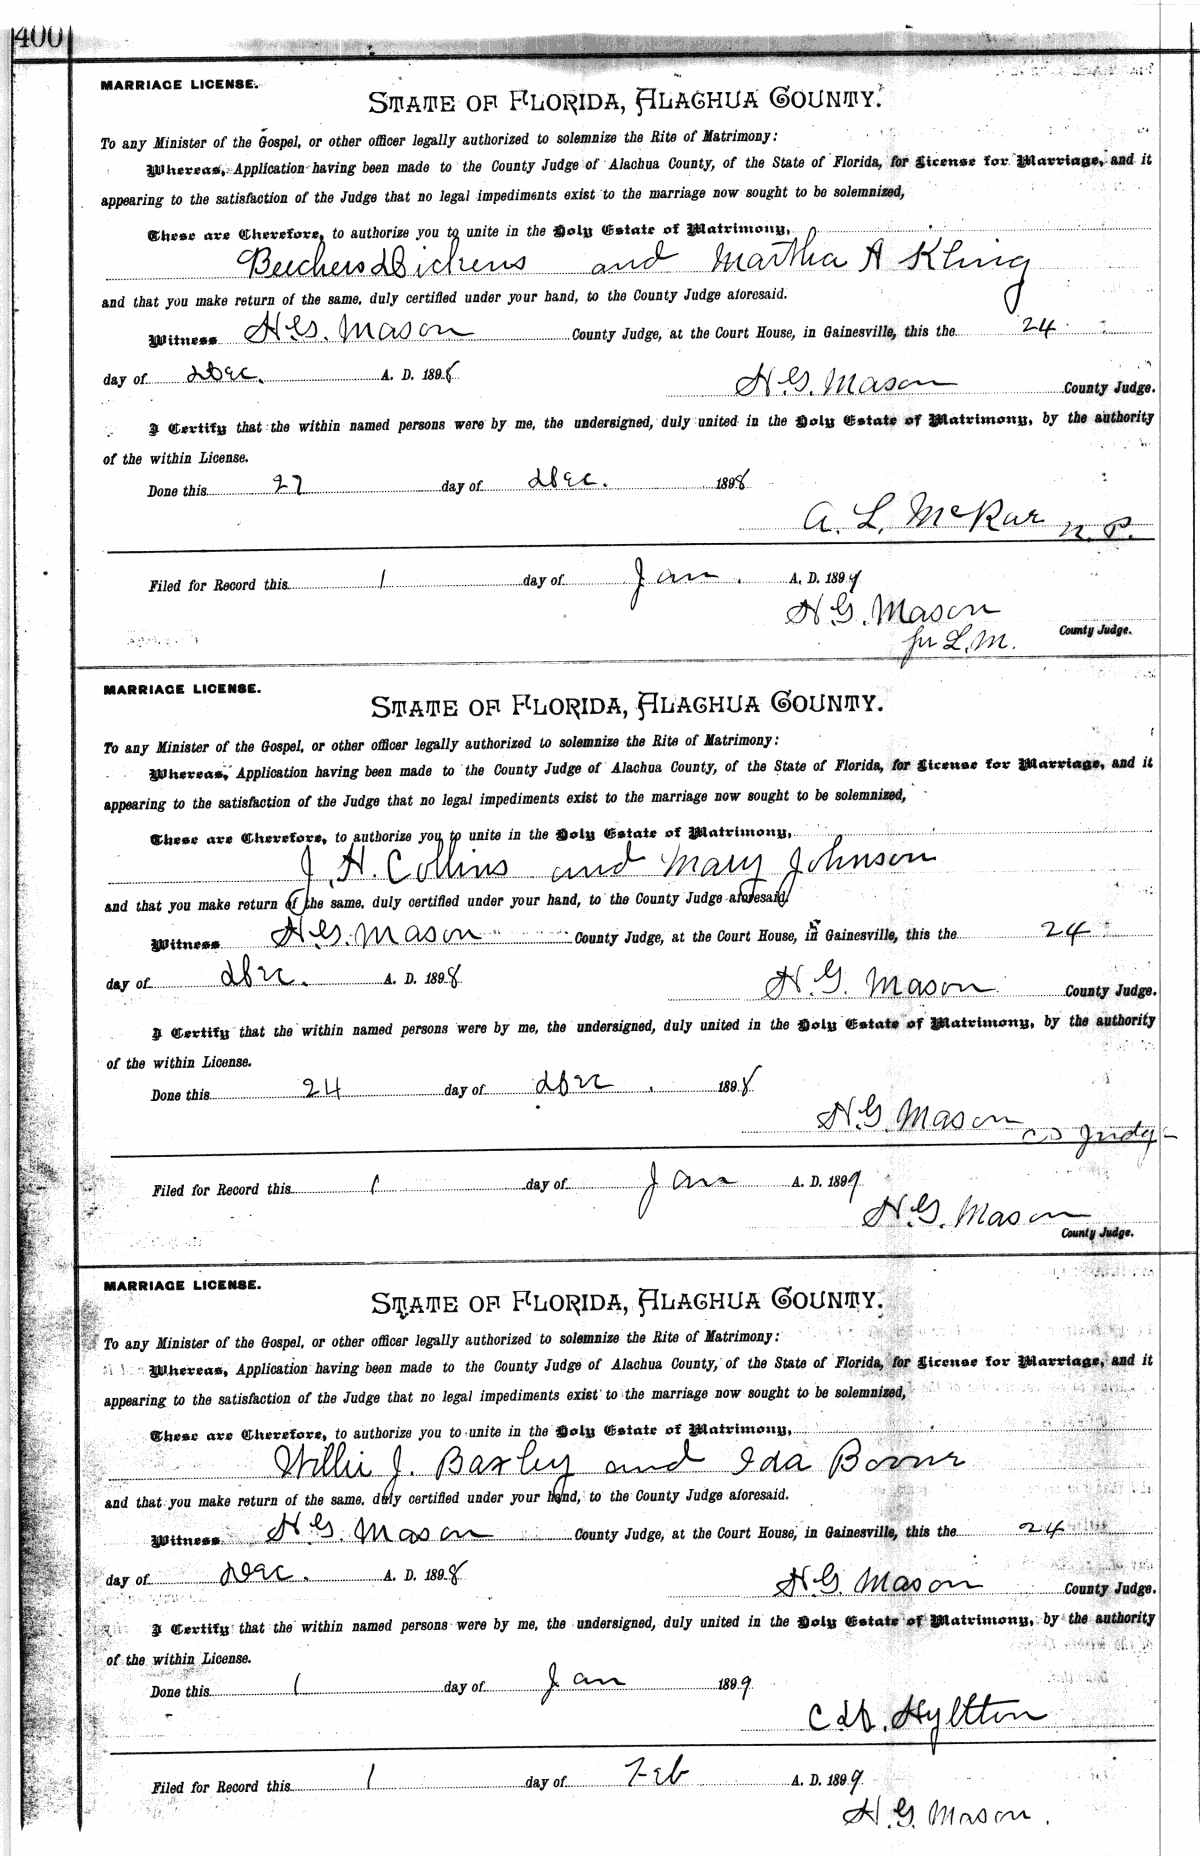 400
MARRIAGE LICENSE.
STATE OF FLORIDA, ALACHUA COUNTY.
To any Minister of the Gospel, or other officer legally authorized to solemnize the Rite of Matrimony:
Whereas, Application having been made to the County Judge of Alachua County, of the State of Florida, for License for Marriage, and it
appearing to the satisfaction of the Judge that no legal impediments exist to the marriage now sought to be solemnized,
These are Therefore, to authorize you to unite in the Holy Estate of Matrimony,
Dickens and Martha A Kling
and that you make return of the same, duly certified under your hand, to the County Judge aforesaid.
Witness H.G. Mason County Judge, at the Court House, in Gainesville, this the 24
day of Dec. A. D. 1898
H.G. Mason County Judge.
I Certify that the within named persons were by me, the undersigned, duly united in the Holy Estate of Matrimony, by the authority
of the within License.
Done this 27 day of Dec. 1898
A. L. McRae N. P.
Filed for Record this 1 day of Jan. A. D. 1899
H G. Mason
County Judge.
per L.M.
MARRIAGE LICENSE.
STATE OF FLORIDA, ALACHUA COUNTY.
To any Minister of the Gospel, or other officer legally authorized to solemnize the Rite of Matrimony:
Whereas, Application having been made to the County Judge of Alachua County, of the State of Florida, for License for Marriage, and it
appearing to the satisfaction of the Judge that no legal impediments exist to the marriage now sought to be solemnized,
These are Therefore, to authorize you to unite in the Holy Estate of Matrimony,
J. H. Collins and Mary Johnson
and that you make return of the same, duly certified under your hand, to the County Judge aforesaid.
Witness H.G. Mason County Judge, at the Court House, in Gainesville, this the 24
day of Dec. A. D. 1898
H. G. Mason County Judge.
I Certify that the within named persons were by me, the undersigned, duly united in the Holy Estate of Matrimony, by the authority
of the within License.
Done this 24 day of Dec. 1898
H.G. Mason Co Judge
Filed for Record this 1 day of Jan A. D. 1899
H.G. Mason
County Judge.
MARRIAGE LICENSE.
STATE OF FLORIDA, ALACHUA COUNTY.
To any Minister of the Gospel, or other officer legally authorized to solemnize the Rite of Matrimony:
Whereas, Application having been made to the County Judge of Alachua County, of the State of Florida, for License for Marriage, and it
appearing to the satisfaction of the Judge that no legal impediments exist to the marriage now sought to be solemnized,
These are Therefore, to authorize you to unite in the Holy Estate of Matrimony,
Willie J. Baxley and Ida
and that you make return of the same, duly certified under your hand, to the County Judge aforesaid.
Witness H G. Mason County Judge, at the Court House, in Gainesville, this the 24
day of Dec. A. D. 1898
H G. Mason County Judge.
I Certify that the within named persons were by me, the undersigned, duly united in the Holy Estate of Matrimony, by the authority
of the within License.
Done this 1 day of Jan 1899
C.D. Hyltton
Filed for Record this 1 day of Feb A. D. 1899
H. G. Mason.